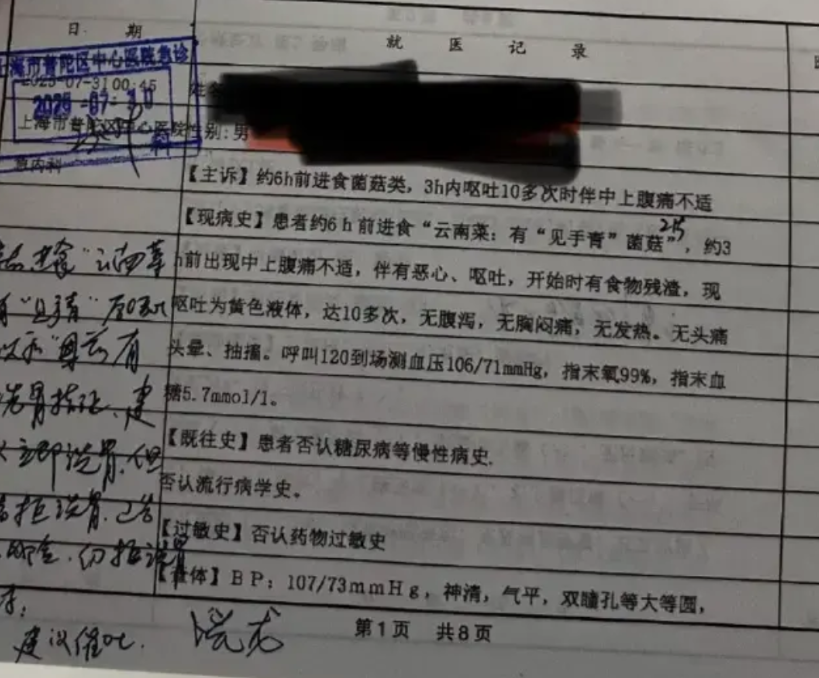 日 期
就 医 记 录
上海市普陀区中心医院急诊
2025-07-31 00:45
上海市普陀区中心医院
性别: 男
急内科
【主诉】约6h前进食菌菇类，3h内呕吐10多次时伴中上腹痛不适
【现病史】患者约6h前进食“云南菜：有“见手青”菌菇”，约3
h前出现中上腹痛不适，伴有恶心、呕吐，开始时有食物残渣，现
呕吐为黄色液体，达10多次，无腹泻，无胸闷痛，无发热。无头痛
头晕、抽搐。呼叫120到场测血压106/71mmHg，指末氧99%，指末血
糖5.7mmol/l。
【既往史】患者否认糖尿病等慢性病史.
否认流行病学史。
【过敏史】否认药物过敏史
【查体】BP：107/73mmHg，神清，气平，双瞳孔等大等圆，
第1页 共8页
进食“云南菜
有
洗胃指征、建
立即洗胃，但
拒洗胃，已告
仍拒洗胃
建议催吐.